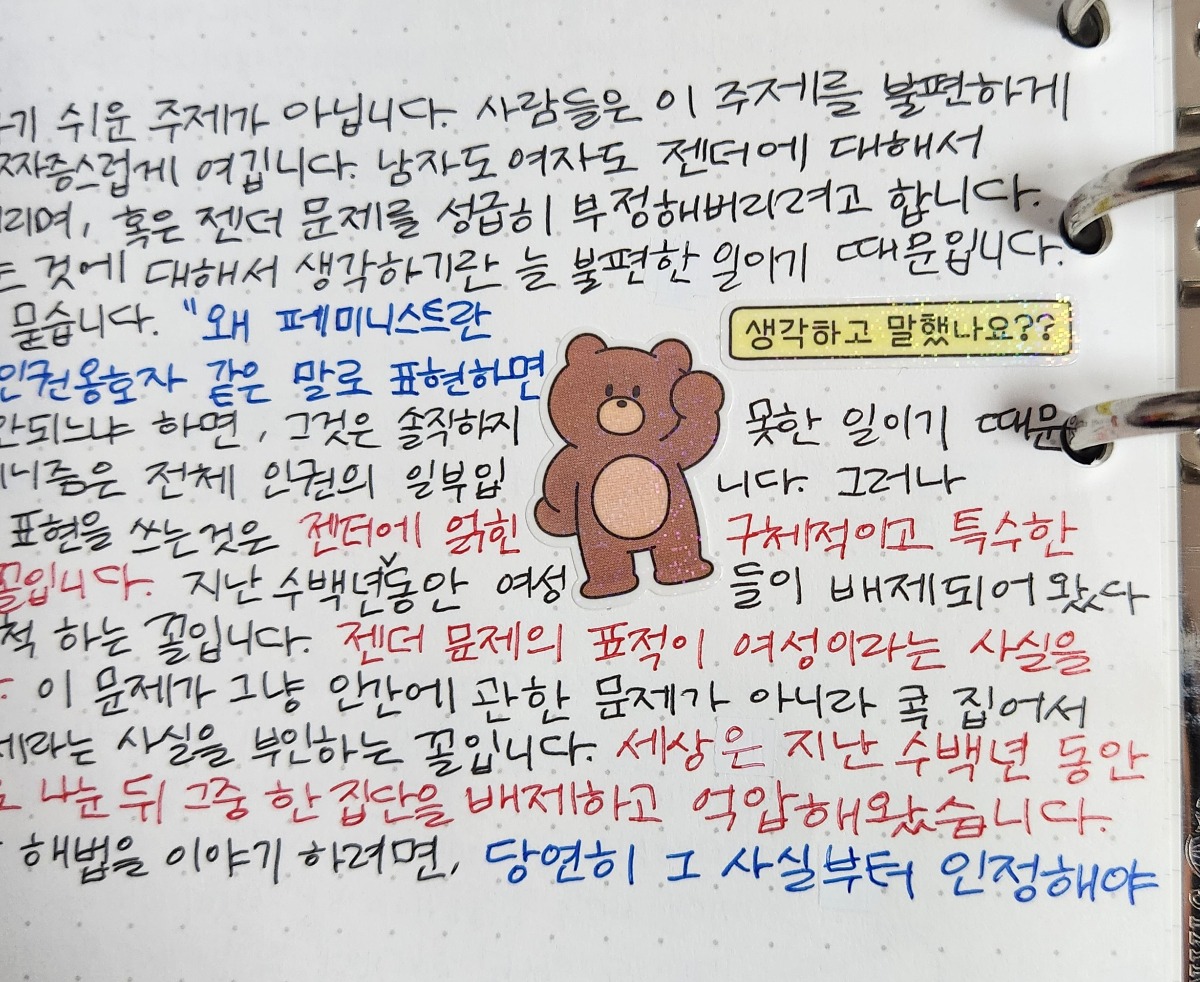 쉬운 주제가 아닙니다. 사람들은 이 주제를 불편하게
짜증스럽게 여깁니다. 남자도 여자도 젠더에 대해서
혹은 젠더 문제를 성급히 부정해버리려고 합니다.
것에 대해서 생각하기란 늘 불편한 일이기 때문입니다.
묻습니다. "왜 페미니스트란
생각하고 말했나요??
인권옹호자 같은 말로 표현하면
안되느냐 하면, 그것은 솔직하지 못한 일이기 때문
니즘은 전체 인권의 일부입니다. 그러나
표현을 쓰는것은 젠더에 얽힌 구체적이고 특수한
꼴입니다. 지난 수백년˅동안 여성들이 배제되어왔다
척 하는 꼴입니다. 젠더 문제의 표적이 여성이라는 사실을
이 문제가 그냥 인간에 관한 문제가 아니라 콕 집어서
라는 사실을 부인하는 꼴입니다. 세상은 지난 수백년 동안
나눈 뒤 그중 한 집단을 배제하고 억압해왔습니다.
해법을 이야기 하려면, 당연히 그 사실부터 인정해야